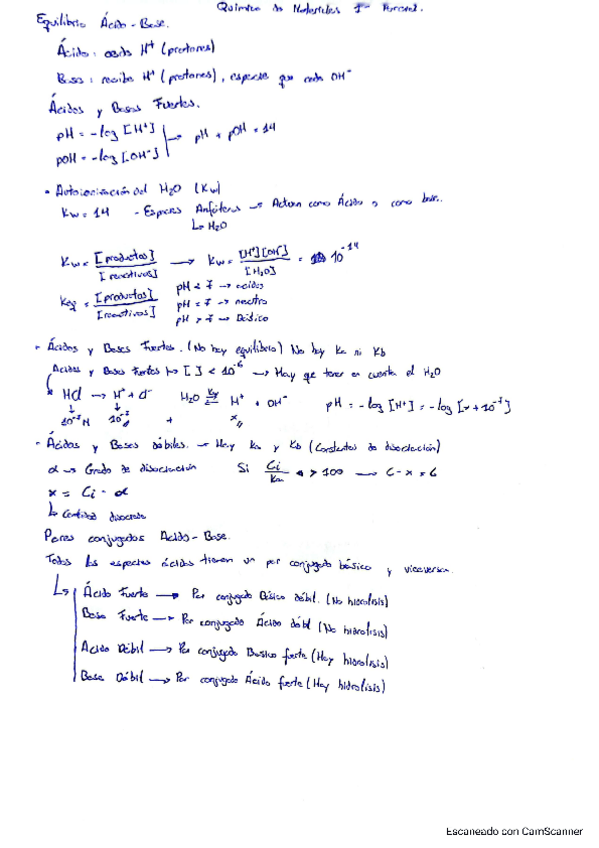 Química de Materiales 1er Parcial.
Equilibrio Ácido-Base.
Ácido: cede H+ (protones)
Base: recibe H+ (protones), especie que cede OH-
Ácidos y Bases Fuertes.
pH = -log [H+]
pOH = -log [OH-] → pH + pOH = 14
• Autoionización del H2O (Kw)
Kw = 14 - Especies Anfóteras → Actúan como Ácido o como base.
↳ H2O
Kw = [productos]/[reactivos] → Kw = [H+][OH-]/[H2O] = 10^-14
Keq = [productos]/[reactivos]
pH < 7 → ácido
pH = 7 → neutro
pH > 7 → Básico
• Ácidos y Bases Fuertes. (No hay equilibrio) No hay Ka ni Kb
Ácidos y Bases Fuertes → [ ] < 10^-6 → Hay que tener en cuenta el H2O
* HCl → H+ + Cl- H2O ⇌ H+ + OH- pH = -log [H+] = -log [x + 10^-7]
+ x
• Ácidos y Bases débiles. → Hay Ka y Kb (Constantes de disociación)
α → Grado de disociación Si Ci/Ka > 100 → C - x = C
x = Ci · α
↳ Cantidad disociada
Pares conjugados Acido-Base.
Todas las especies ácidas tienen un par conjugado básico y viceversa.
↳ Ácido Fuerte → Par conjugado Básico débil. (No hidrólisis)
Base Fuerte → Par conjugado Ácido débil (No hidrólisis)
Acido Débil → Par conjugado Básico fuerte (Hay hidrólisis)
Base Débil → Par conjugado Ácido fuerte (Hay hidrólisis)
Escaneado con CamScanner